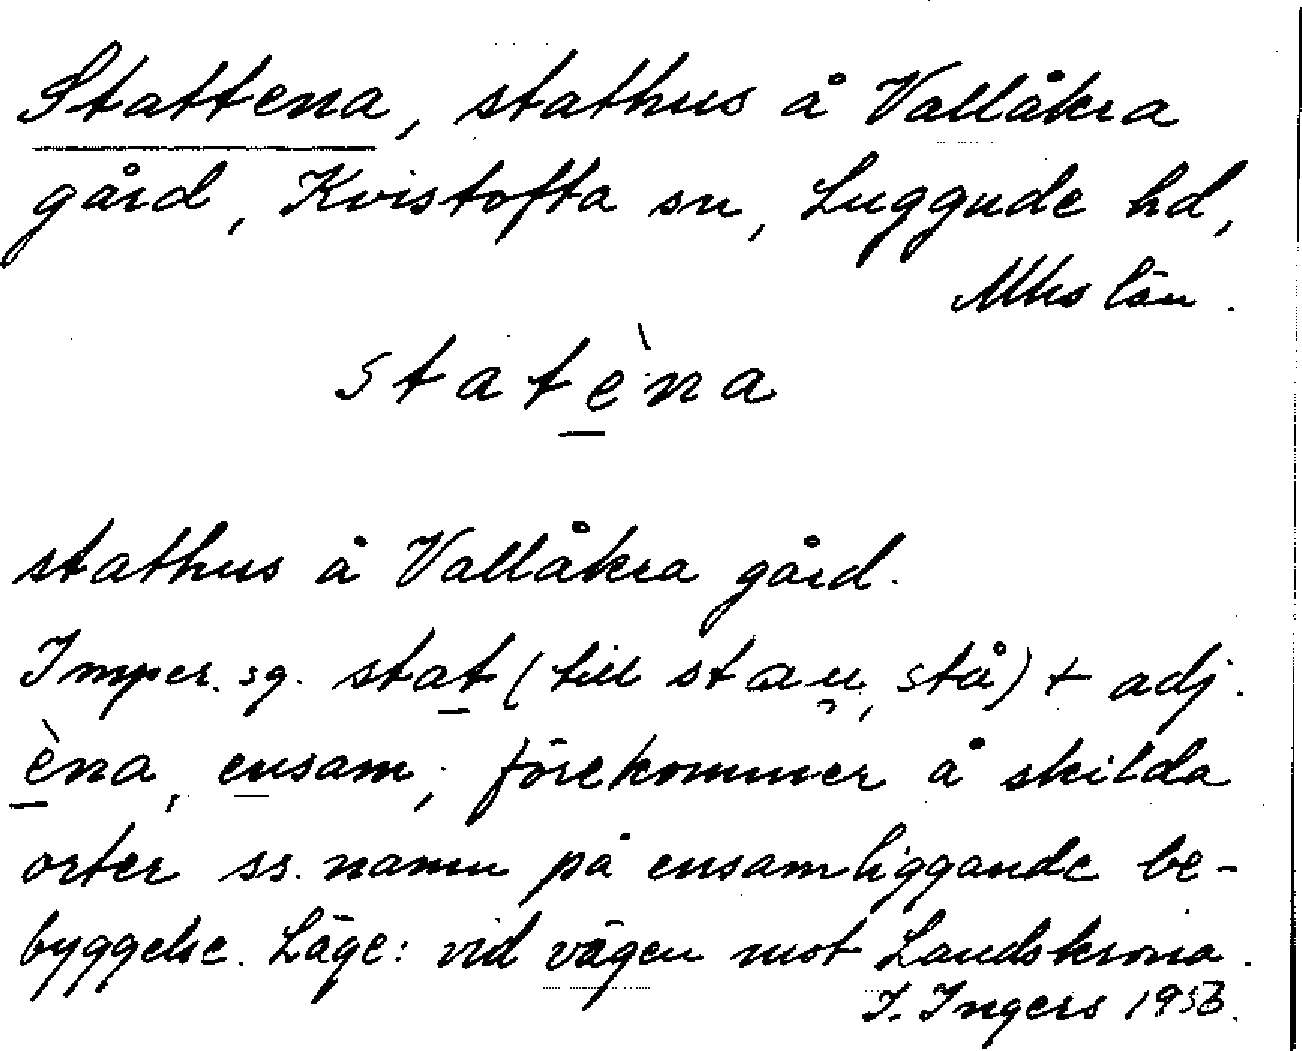 Stattena, stathus å Vallåkra
gård, Kvistofta sn, Luggude hd,
Mhs län.
statèna
stathus å Vallåkra gård.
Imper. sg. stat (till stau, stå) + adj.
èna, ensam; förekommer å skilda
orter ss. namn på ensamliggande be-
byggelse. Läge: vid vägen mot Landskrona.
I. Ingers 1956.